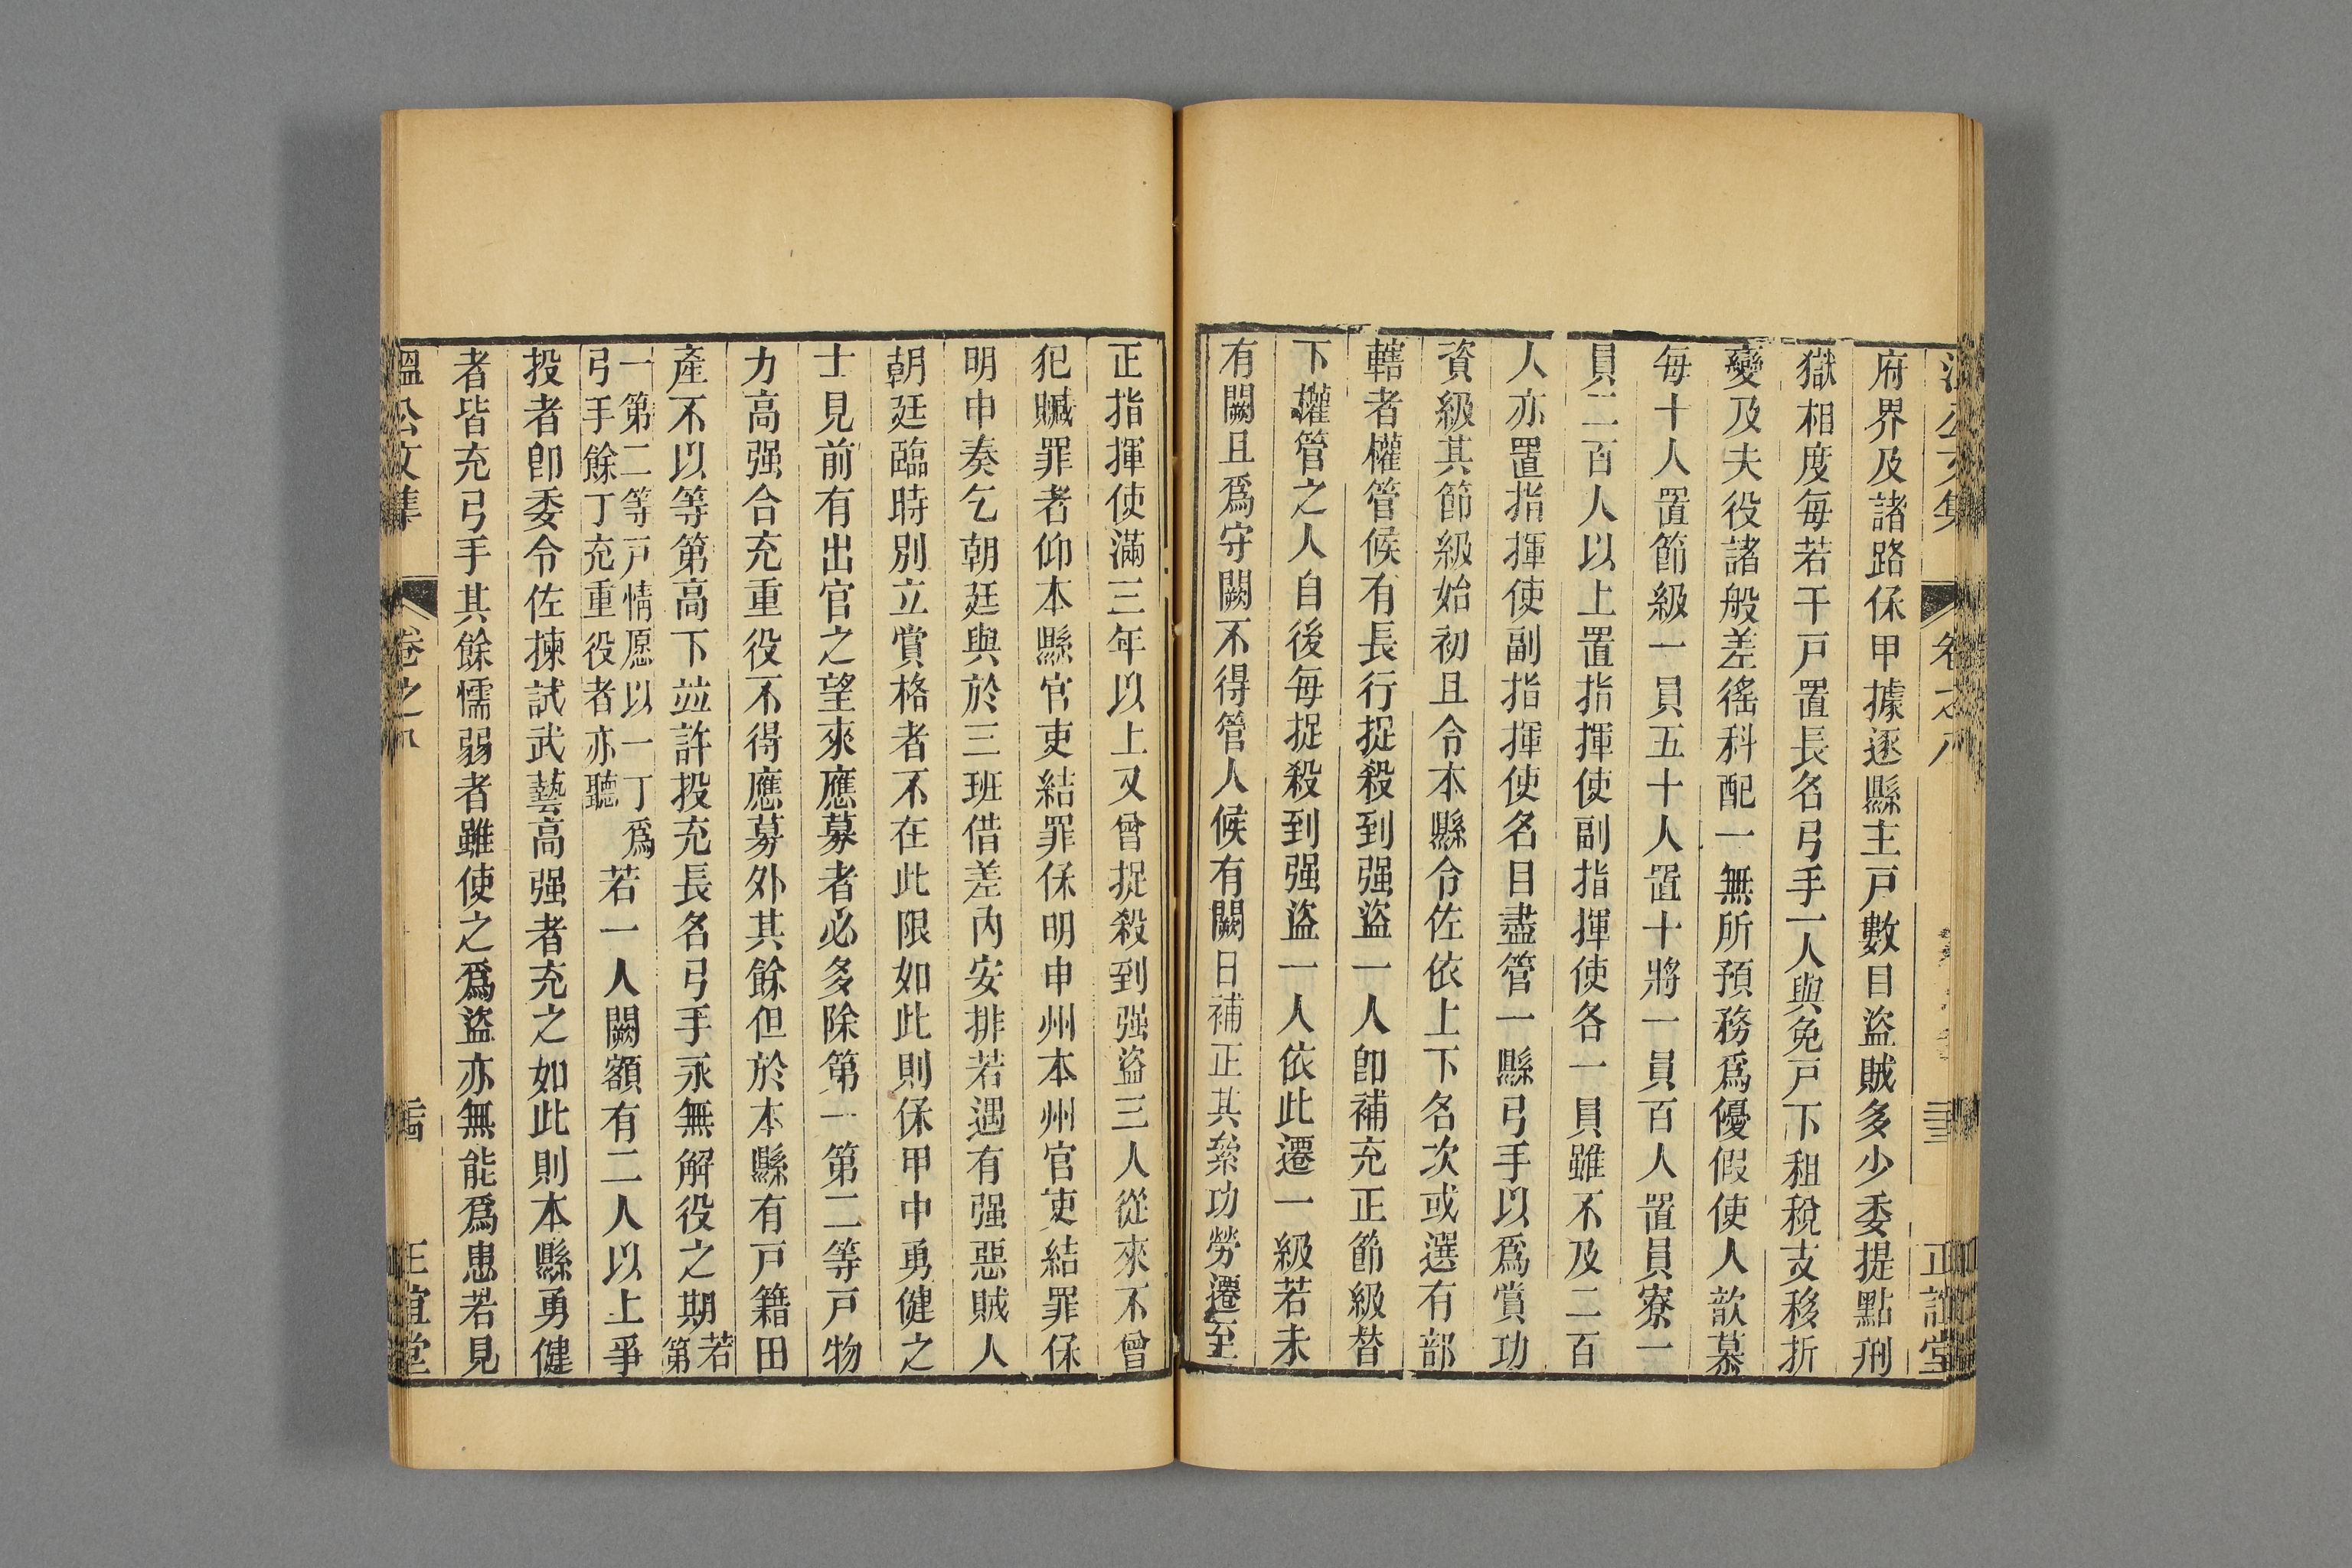 府界及諸路保甲據逐縣主戸數目盜賊多少委提點刑
獄相度每若干戸置長名弓手一人與免戸下租稅支移折
變及夫役諸般差徭科配一無所預務爲優假使人歆慕
每十人置節級一員五十人置十將一員百人置員寮一
員二百人以上置指揮使副指揮使各一員雖不及二百
人亦置指揮使副指揮使名目盡管一縣弓手以爲賞功
資級其節級始初且令本縣令佐依上下名次或選有部
轄者權管候有長行捉殺到强盜一人卽補充正節級替
下權管之人自後每捉殺到强盜一人依此遷一級若未
有闕且爲守闕不得管人候有闕日補正其絫功勞遷至
正指揮使滿三年以上又曾捉殺到强盜三人從來不曾
犯贓罪者仰本縣官吏結罪保明申州本州官吏結罪保
明申奏乞朝廷與於三班借差内安排若遇有强惡賊人
朝廷臨時別立賞格者不在此限如此則保甲中勇健之
士見前有出官之望來應募者必多除第一第二等戸物
力高强合充重役不得應募外其餘但於本縣有戸籍田
產不以等第高下竝許投充長名弓手永無解役之期若第
一第二等戸情愿以一丁爲弓手餘丁充重役者亦聽若一人闕額有二人以上爭
投者卽委令佐揀試武藝高强者充之如此則本縣勇健
者皆充弓手其餘懦弱者雖使之爲盜亦無能爲患若見
溫公文集 卷之 正誼堂